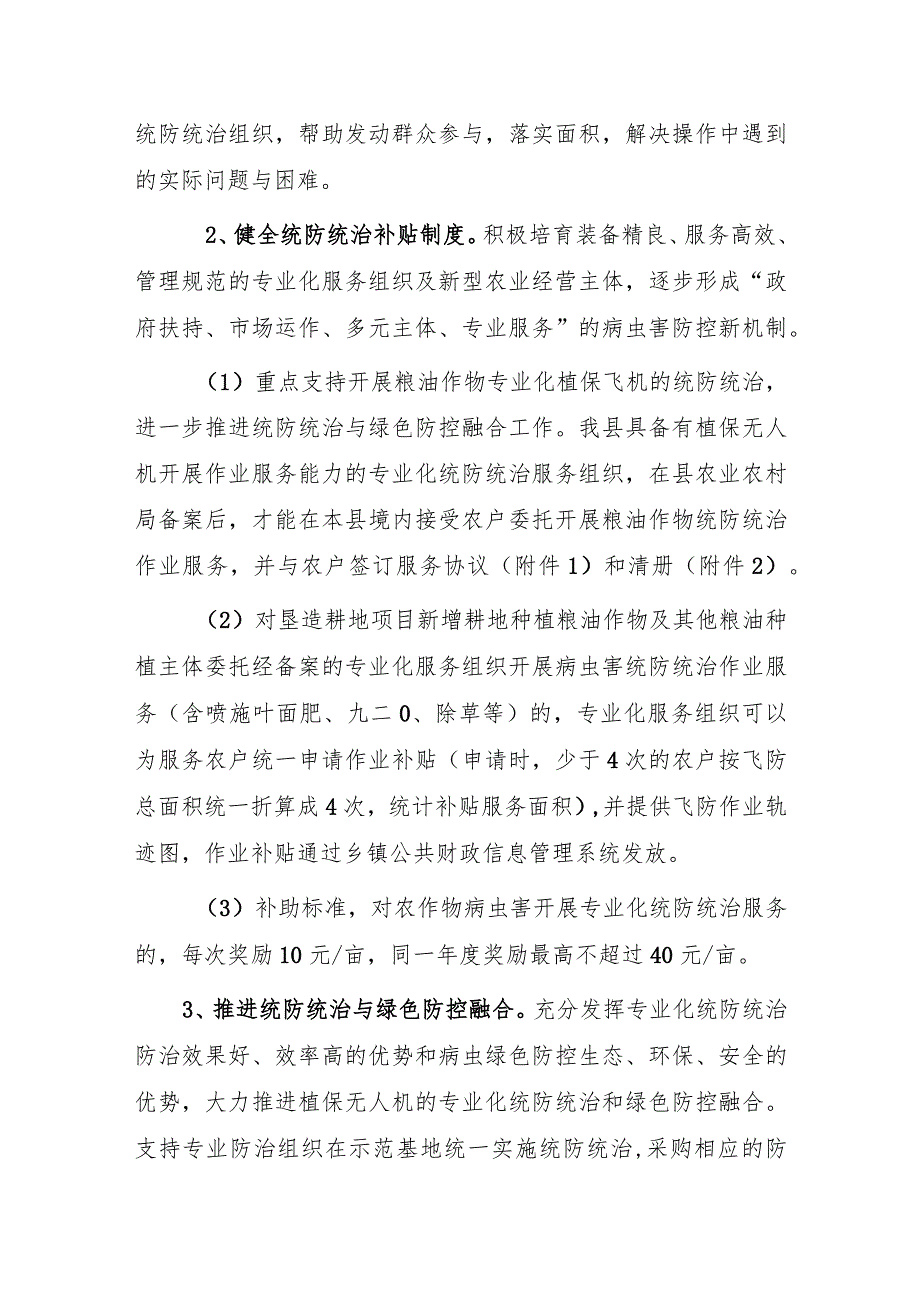 统防统治组织，帮助发动群众参与，落实面积，解决操作中遇到
的实际问题与困难。
2、健全统防统治补贴制度。积极培育装备精良、服务高效、
管理规范的专业化服务组织及新型农业经营主体，逐步形成“政
府扶持、市场运作、多元主体、专业服务”的病虫害防控新机制。
（1）重点支持开展粮油作物专业化植保飞机的统防统治，
进一步推进统防统治与绿色防控融合工作。我县具备有植保无人
机开展作业服务能力的专业化统防统治服务组织，在县农业农村
局备案后，才能在本县境内接受农户委托开展粮油作物统防统治
作业服务，并与农户签订服务协议（附件1）和清册（附件2）。
（2）对垦造耕地项目新增耕地种植粮油作物及其他粮油种
植主体委托经备案的专业化服务组织开展病虫害统防统治作业服
务（含喷施叶面肥、九二0、除草等）的，专业化服务组织可以
为服务农户统一申请作业补贴（申请时，少于4次的农户按飞防
总面积统一折算成4次，统计补贴服务面积）,并提供飞防作业轨
迹图，作业补贴通过乡镇公共财政信息管理系统发放。
（3）补助标准，对农作物病虫害开展专业化统防统治服务
的，每次奖励10元/亩，同一年度奖励最高不超过40元/亩。
3、推进统防统治与绿色防控融合。充分发挥专业化统防统治
防治效果好、效率高的优势和病虫绿色防控生态、环保、安全的
优势，大力推进植保无人机的专业化统防统治和绿色防控融合。
支持专业防治组织在示范基地统一实施统防统治,采购相应的防